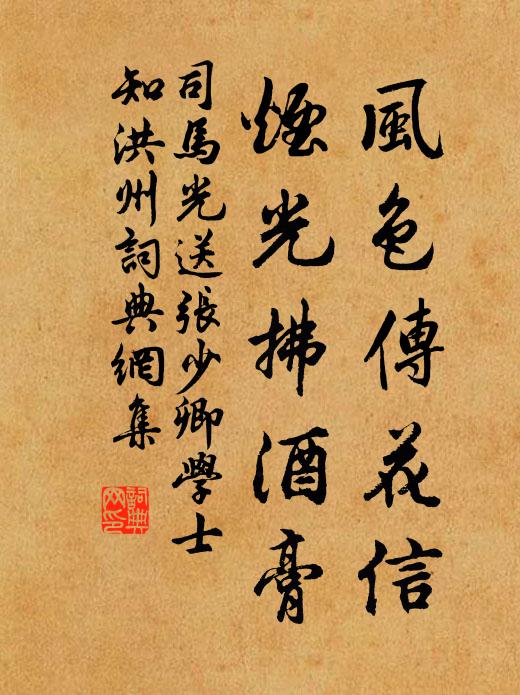 風色傳花信
煙光拂酒膏
司馬光送張少卿學士
知洪州詞典網集
詞典
网印